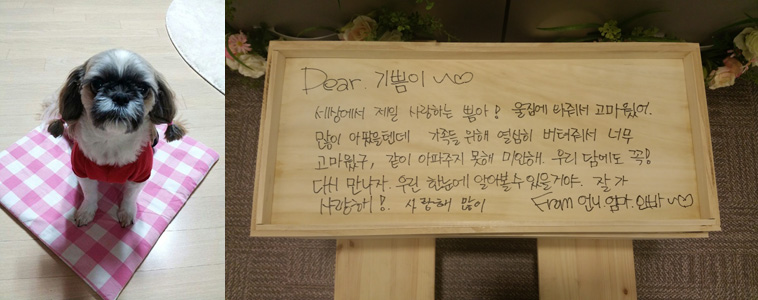 Dear. 기쁨이
세상에서 제일 사랑하는 쁨아! 울집에 와줘서 고마웠어.
많이 아팠을텐데 가족들 위해 열심히 버텨줘서 너무
고마웠구, 같이 아파주지 못해 미안해. 우리 담에도 꼭!
다시 만나자. 우린 한눈에 알아볼수 있을거야. 잘가
사랑해! 사랑해 많이 From 언니.엄마.아빠